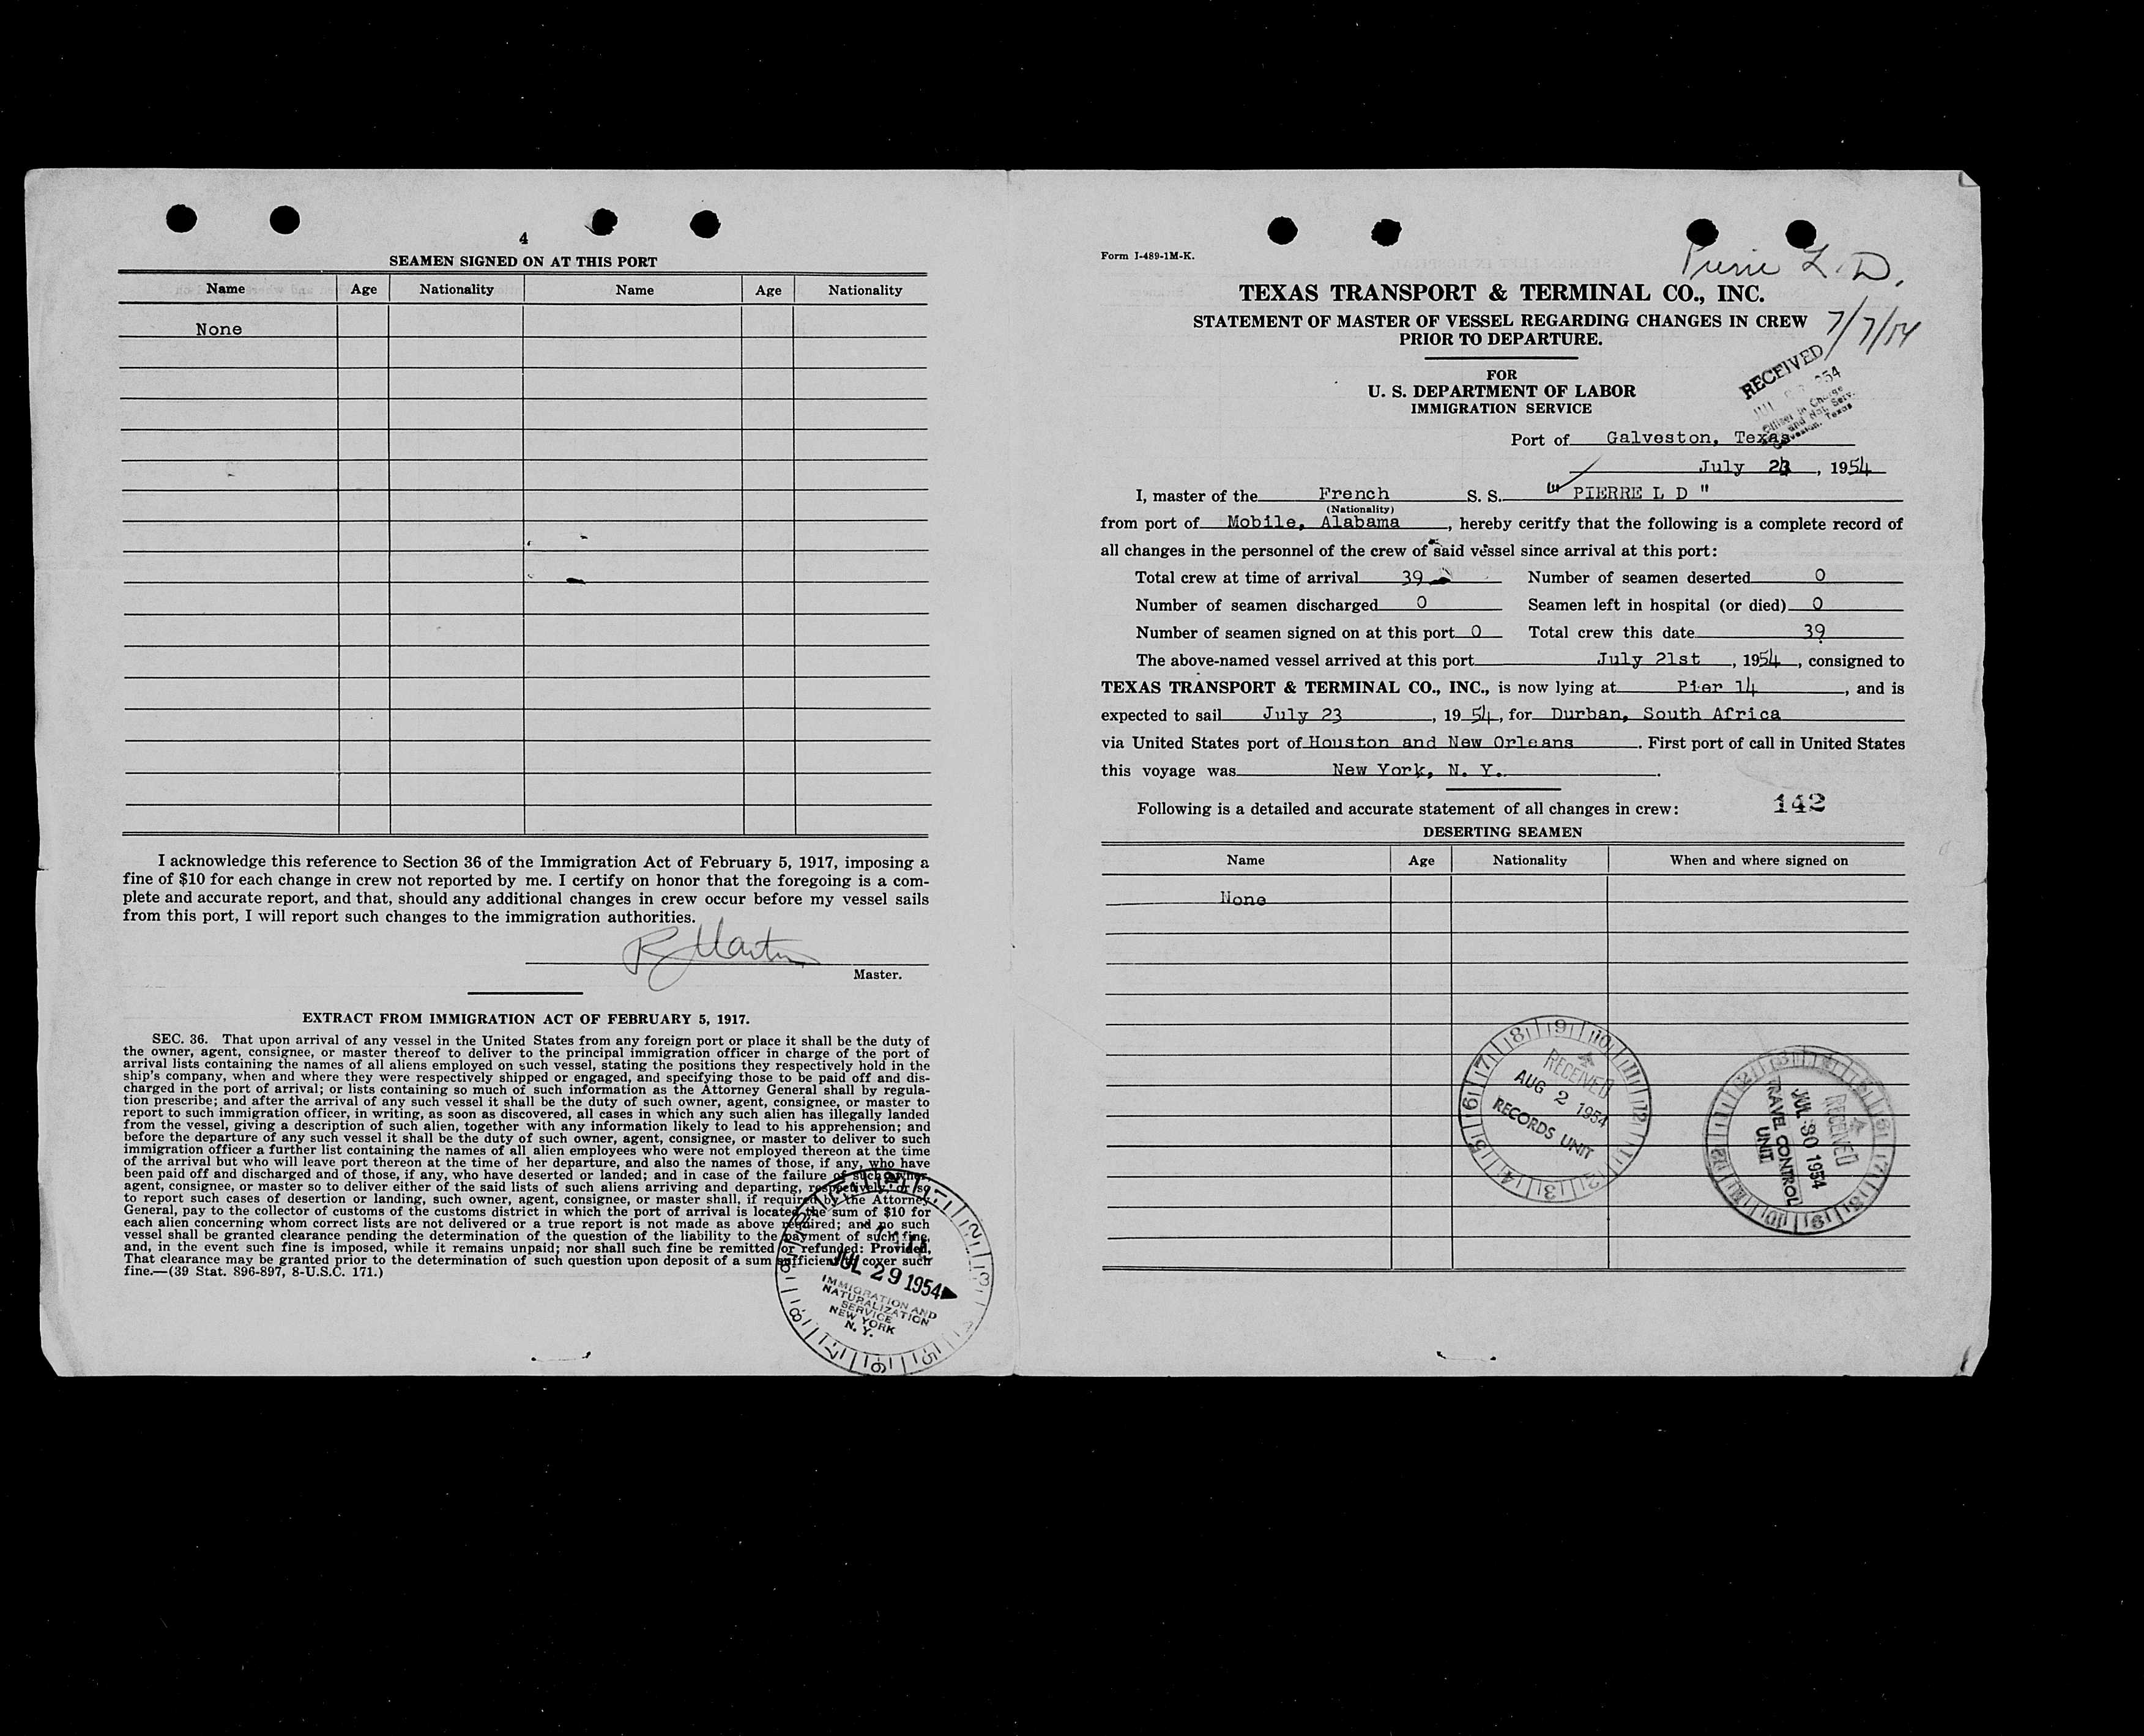 4
SEAMEN SIGNED ON AT THIS PORT
Name Age Nationality Name Age Nationality
None
I acknowledge this reference to Section 36 of the Immigration Act of February 5, 1917, imposing a
fine of $10 for each change in crew not reported by me. I certify on honor that the foregoing is a com-
plete and accurate report, and that, should any additional changes in crew occur before my vessel sails
from this port, I will report such changes to the immigration authorities.
Master.
EXTRACT FROM IMMIGRATION ACT OF FEBRUARY 5, 1917.
SEC. 36. That upon arrival of any vessel in the United States from any foreign port or place it shall be the duty of
the owner, agent, consignee, or master thereof to deliver to the principal immigration officer in charge of the port of
arrival lists containing the names of all aliens employed on such vessel, stating the positions they respectively hold in the
ship's company, when and where they were respectively shipped or engaged, and specifying those to be paid off and dis-
charged in the port of arrival; or lists containing so much of such information as the Attorney General shall by regula-
tion prescribe; and after the arrival of any such vessel it shall be the duty of such owner, agent, consignee, or master to
report to such immigration officer, in writing, as soon as discovered, all cases in which any such alien has illegally landed
from the vessel, giving a description of such alien, together with any information likely to lead to his apprehension; and
before the departure of any such vessel it shall be the duty of such owner, agent, consignee, or master to deliver to such
immigration officer a further list containing the names of all alien employees who were not employed thereon at the time
of the arrival but who will leave port thereon at the time of her departure, and also the names of those, if any, who have
been paid off and discharged and of those, if any, who have deserted or landed; and in case of the failure of such owner,
agent, consignee, or master so to deliver either of the said lists of such aliens arriving and departing, respectively, or so
to report such cases of desertion or landing, such owner, agent, consignee, or master shall, if required by the Attorney
General, pay to the collector of customs of the customs district in which the port of arrival is located the sum of $10 for
each alien concerning whom correct lists are not delivered or a true report is not made as above required; and no such
vessel shall be granted clearance pending the determination of the question of the liability to the payment of such fine,
and, in the event such fine is imposed, while it remains unpaid; nor shall such fine be remitted or refunded: Provided,
That clearance may be granted prior to the determination of such question upon deposit of a sum sufficient to cover such
fine.—(39 Stat. 896-897, 8-U.S.C. 171.)
JUL 29 1954
IMMIGRATION AND
NATURALIZATION
SERVICE
NEW YORK
N. Y.
Form I-489-1M-K.
Pierre L. D.
7/7/54
TEXAS TRANSPORT & TERMINAL CO., INC.
STATEMENT OF MASTER OF VESSEL REGARDING CHANGES IN CREW
PRIOR TO DEPARTURE.
FOR
U. S. DEPARTMENT OF LABOR
IMMIGRATION SERVICE
RECEIVED
Officer in Charge
and Nat. Serv.
Galveston, Texas
Port of Galveston, Texas
July 23, 1954
I, master of the French S. S. "PIERRE L D "
(Nationality)
from port of Mobile, Alabama, hereby ceritfy that the following is a complete record of
all changes in the personnel of the crew of said vessel since arrival at this port:
Total crew at time of arrival 39 Number of seamen deserted 0
Number of seamen discharged 0 Seamen left in hospital (or died) 0
Number of seamen signed on at this port 0 Total crew this date 39
The above-named vessel arrived at this port July 21st, 1954, consigned to
TEXAS TRANSPORT & TERMINAL CO., INC., is now lying at Pier 14, and is
expected to sail July 23, 19 54, for Durban, South Africa
via United States port of Houston and New Orleans. First port of call in United States
this voyage was New York, N. Y..
Following is a detailed and accurate statement of all changes in crew: 142
DESERTING SEAMEN
Name Age Nationality When and where signed on
None
RECEIVED
AUG 2 1954
RECORDS UNIT
RECEIVED
JUL 30 1954
TRAVEL CONTROL
UNIT